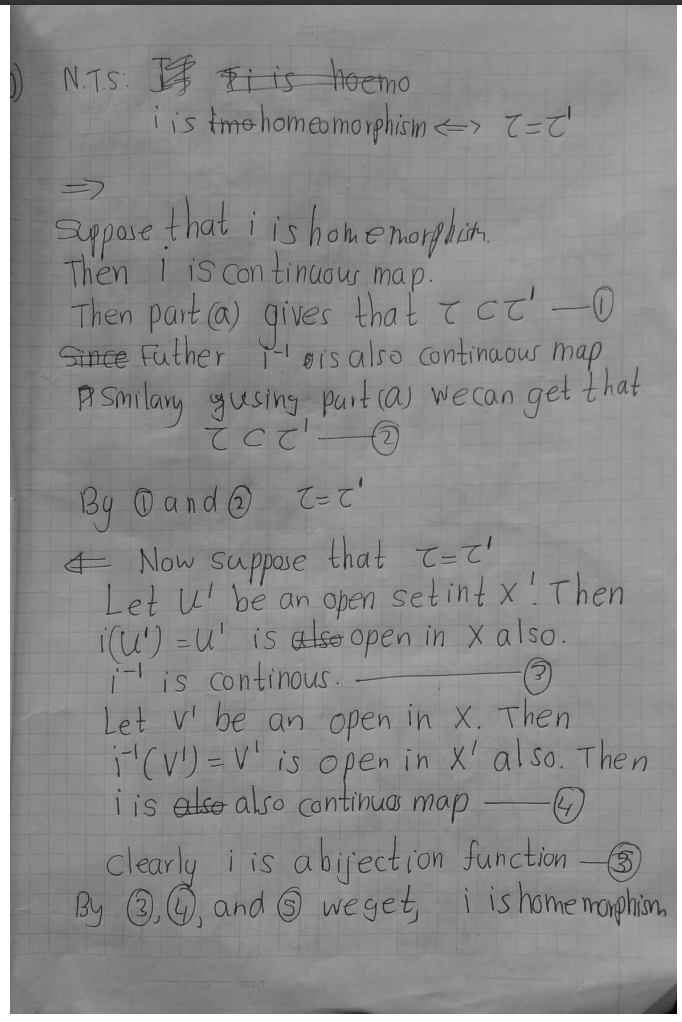 ) N.T.S:
i is homeomorphism <=> τ=τ'
=>
Suppose that i is homemorphism.
Then i is continuous map.
Then part (a) gives that τ ⊂ τ' — ①
Futher i⁻¹ is also continaous map
Smilary yusing part (a) we can get that
τ ⊂ τ' — ②
By ① and ② τ=τ'
<= Now suppose that τ=τ'
Let U' be an open set int X'. Then
i(U') = U' is open in X also.
i⁻¹ is continous. — ③
Let V' be an open in X. Then
i⁻¹(V') = V' is open in X' also. Then
i is also continuos map — ④
clearly i is a bijection function — ⑤
By ③, ④, and ⑤ we get, i is homemorphism